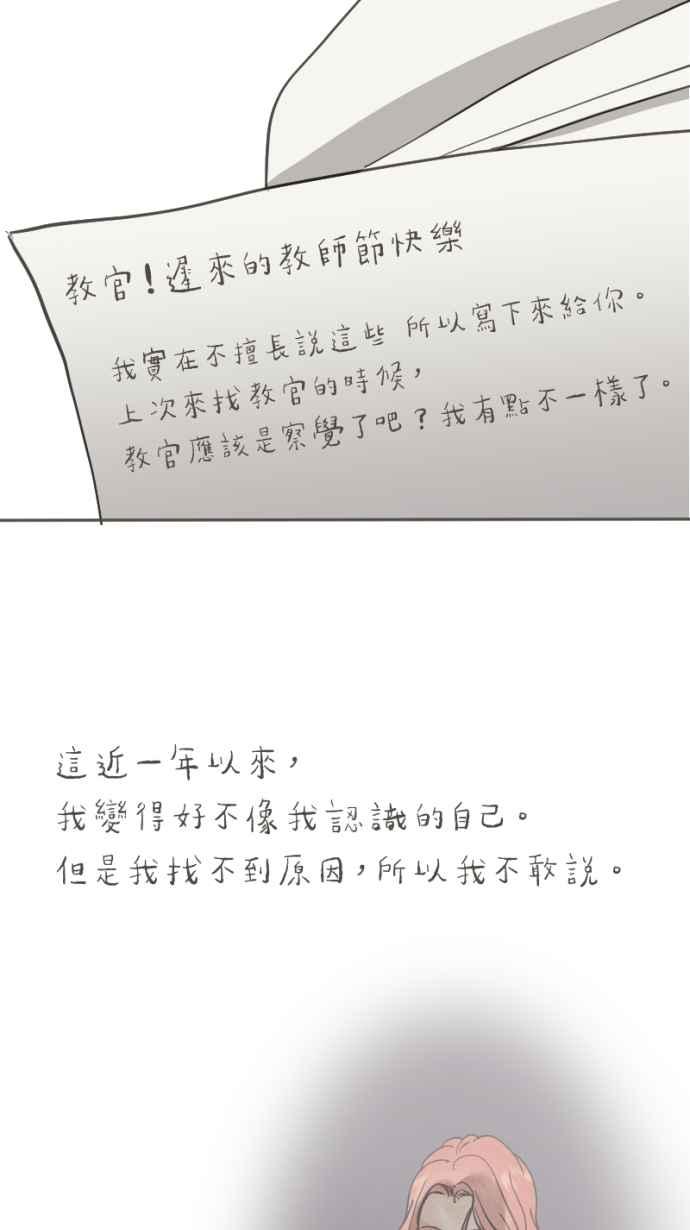 教官!遲來的教師節快樂
我實在不擅長說這些 所以寫下來給你。
上次來找教官的時候，
教官應該是察覺了吧？我有點不一樣了。
這近一年以來，
我變得好不像我認識的自己。
但是我找不到原因，所以我不敢說。